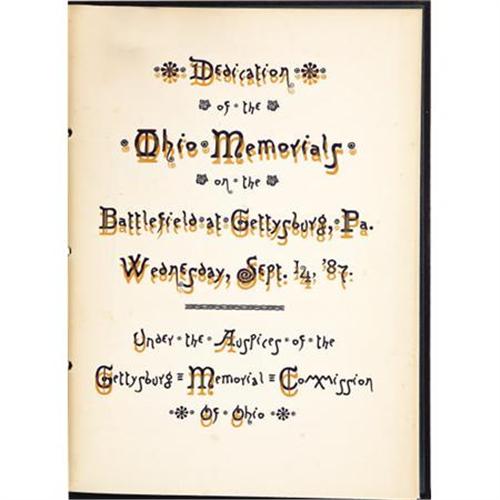 Dedication
of the
Ohio Memorials
on the
Battlefield at Gettysburg, Pa.
Wednesday, Sept. 14, '87.
Under the Auspices of the
Gettysburg = Memorial = Commission
Of Ohio